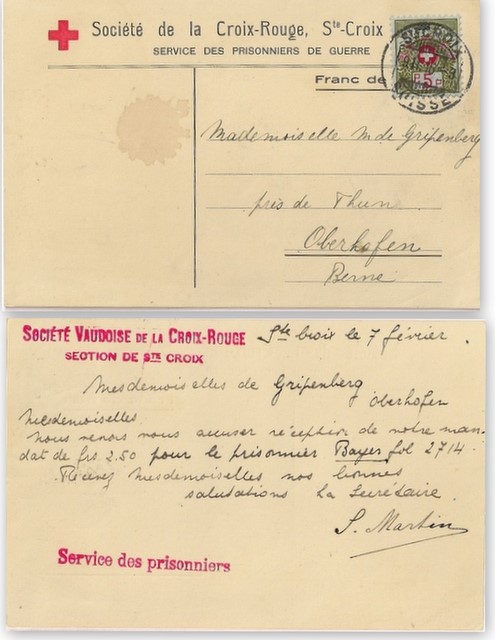 Société de la Croix-Rouge, Ste-Croix
SERVICE DES PRISONNIERS DE GUERRE
Franc de
STE CROIX
5
SUISSE
Mademoiselle M de Gripenberg
près de Thune
Oberhofen
Berne
SOCIÉTÉ VAUDOISE DE LA CROIX-ROUGE
SECTION DE STE CROIX
Ste Croix le 7 février.
Mesdemoiselles de Gripenberg
Oberhofen
Mesdemoiselles.
Nous venons vous accuser réception de votre man-
dat de frs 2.50 pour le prisonnier Bayer fol 2714.
Recevez Mesdemoiselles nos bonnes
salutations La Secrétaire.
S. Martin
Service des prisonniers